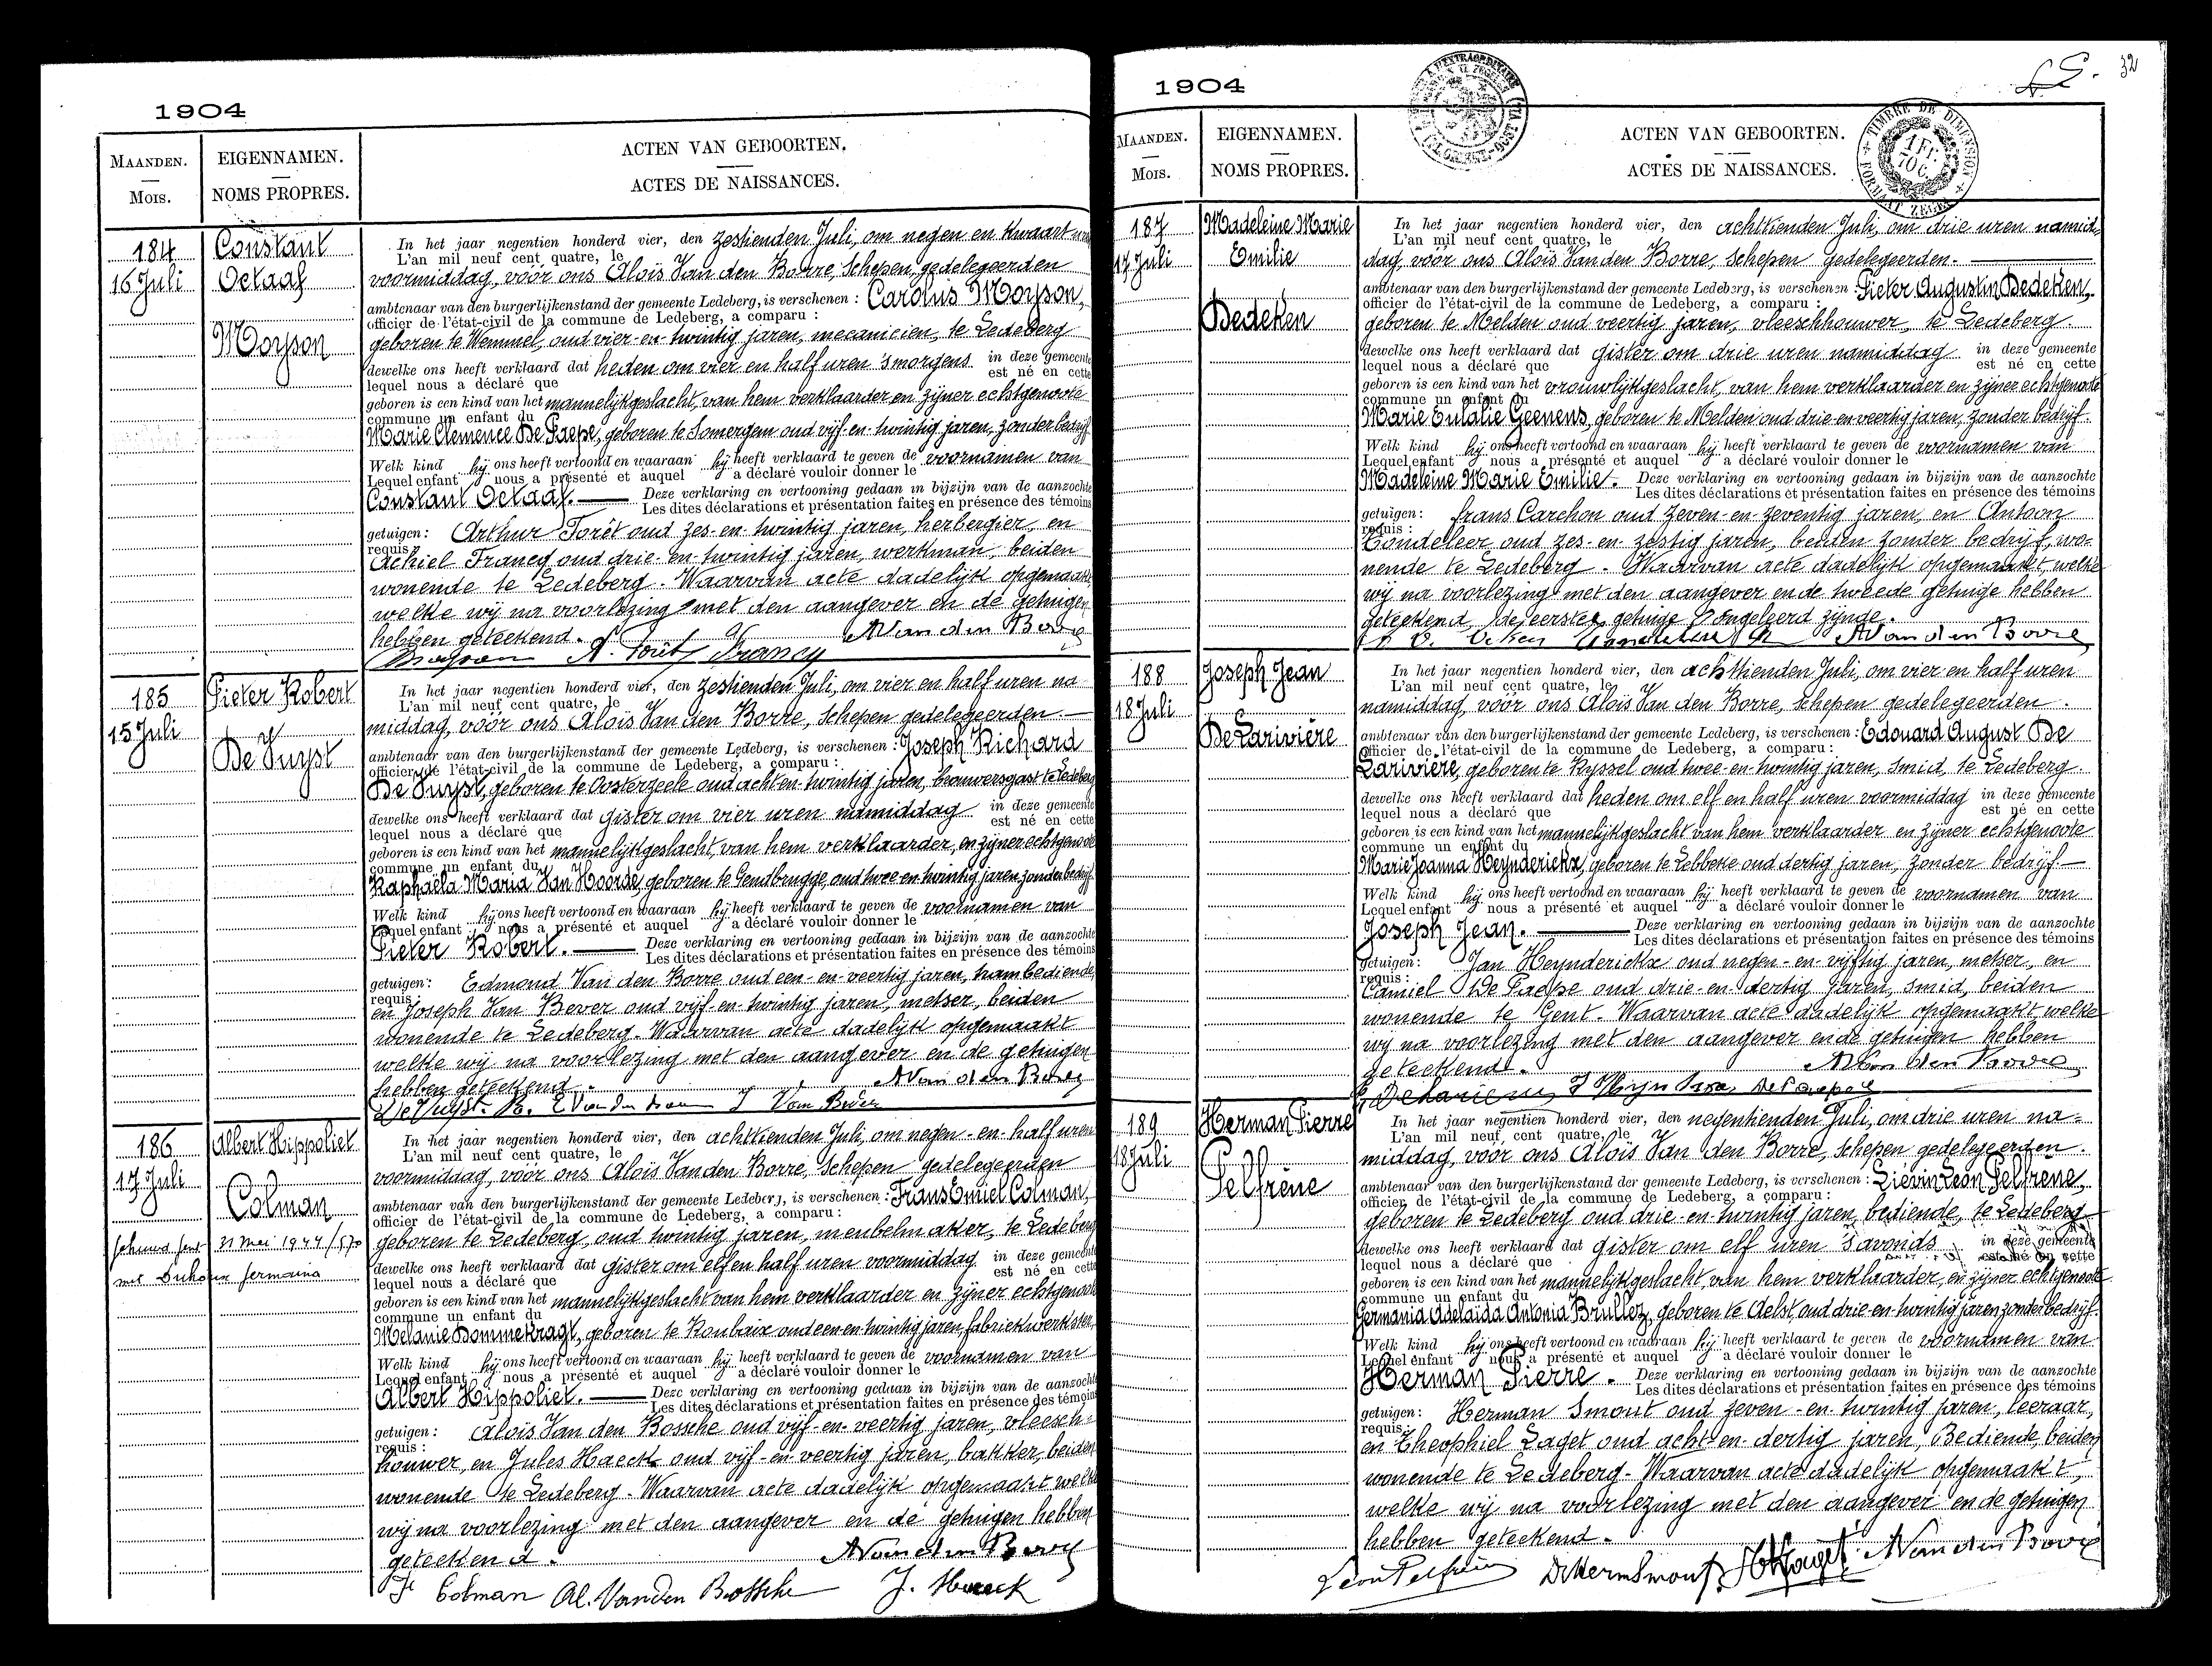 1904
MAANDEN.
Mois.
EIGENNAMEN.
NOMS PROPRES.
ACTEN VAN GEBOORTEN.
ACTES DE NAISSANCES.
184
16 Juli
Constant
Octaaf
Moyson
In het jaar negentien honderd vier, den zestienden Juli, om negen en kwaart uren
L'an mil neuf cent quatre, le
voormiddag, vóór ons Aloïs Van den Borre, Schepen, gedelegeerden
ambtenaar van den burgerlijkenstand der gemeente Ledeberg, is verschenen : Carolus Moyson,
officier de l'état-civil de la commune de Ledeberg, a comparu :
geboren te Wemmel, oud vier-en-twintig jaren, mecanicien, te Ledeberg
dewelke ons heeft verklaard dat heden om vier en half uren 'smorgens in deze gemeente
lequel nous a déclaré que est né en cette
geboren is een kind van het mannelijkgeslacht, van hem verklaarder en zijner echtgenoote
commune un enfant du
Marie Clemence De Paepe, geboren te Somergem oud vijf-en-twintig jaren, zonder bedrijf
Welk kind hij ons heeft vertoond en waaraan hij heeft verklaard te geven de voornamen van
Lequel enfant nous a présenté et auquel a déclaré vouloir donner le
Constant Octaaf. Deze verklaring en vertooning gedaan in bijzijn van de aanzochte
Les dites déclarations et présentation faites en présence des témoins
getuigen: Arthur Forêt oud zes-en-twintig jaren, herbergier, en
requis :
Achiel Francq oud drie-en-twintig jaren, werkman, beiden
wonende te Ledeberg. Waarvan acte dadelijk opgemaakt
welke wij na voorlezing met den aangever en de getuigen
hebben geteekend. A Van den Borre
Moyson A. Forêt Francq
185
15 Juli
Pieter Robert
De Vuyst
In het jaar negentien honderd vier, den zestienden Juli, om vier en half uren na
L'an mil neuf cent quatre, le
middag, vóór ons Aloïs Van den Borre, Schepen gedelegeerden.
ambtenaar van den burgerlijkenstand der gemeente Ledeberg, is verschenen : Joseph Richard
officier de l'état-civil de la commune de Ledeberg, a comparu :
De Vuyst, geboren te Oosterzeele oud acht-en-twintig jaren, brouwersgast te Ledeberg
dewelke ons heeft verklaard dat gister om vier uren namiddag in deze gemeente
lequel nous a déclaré que est né en cette
geboren is een kind van het mannelijkgeslacht, van hem verklaarder, en zijner echtgenoote
commune un enfant du
Raphaëla Maria Van Hoorde, geboren te Gendbrugge, oud twee en twintig jaren zonder bedrijf.
Welk kind hij ons heeft vertoond en waaraan hij heeft verklaard te geven de voornamen van
Lequel enfant nous a présenté et auquel a déclaré vouloir donner le
Pieter Robert. Deze verklaring en vertooning gedaan in bijzijn van de aanzochte
Les dites déclarations et présentation faites en présence des témoins
getuigen: Edmond Van den Borre oud een-en-veertig jaren, trambediende,
requis :
en Joseph Van Bever oud vijf-en-twintig jaren, metser, beiden
wonende te Ledeberg. Waarvan acte dadelijk opgemaakt
welke wij na voorlezing met den aangever en de getuigen
hebben geteekend. A Van den Borre
De Vuyst R. E Van den Borre J Van Bever
186
17 Juli
Albert Hippoliet
Colman
Gehuwd Gent 31 Mei 1944/570
met Duhoux Germaina
In het jaar negentien honderd vier, den achttienden Juli, om negen-en-half uren
L'an mil neuf cent quatre, le
voormiddag, vóór ons Aloïs Van den Borre, Schepen gedelegeerden
ambtenaar van den burgerlijkenstand der gemeente Ledeberg, is verschenen : Frans Emiel Colman,
officier de l'état-civil de la commune de Ledeberg, a comparu :
geboren te Ledeberg, oud twintig jaren, meubelmaker, te Ledeberg
dewelke ons heeft verklaard dat gister om elf en half uren voormiddag in deze gemeente
lequel nous a déclaré que est né en cette
geboren is een kind van het mannelijkgeslacht van hem verklaarder en zijner echtgenoote
commune un enfant du
Melanie Dommekragt, geboren te Roubaix oud een en twintig jaren, fabriekwerkster,
Welk kind hij ons heeft vertoond en waaraan hij heeft verklaard te geven de voornamen van
Lequel enfant nous a présenté et auquel a déclaré vouloir donner le
Albert Hippoliet. Deze verklaring en vertooning gedaan in bijzijn van de aanzochte
Les dites déclarations et présentation faites en présence des témoins
getuigen: Aloïs Van den Bossche oud vijf-en-veertig jaren, vleesch=
requis :
houwer, en Jules Haeck oud vijf-en-veertig jaren, bakker, beiden
wonende te Ledeberg. Waarvan acte dadelijk opgemaakt welke
wij na voorlezing met den aangever en de getuigen hebben
geteekend. A Van den Borre
Colman Al. Van Den Bossche J. Haeck
1904
32
TIMBRE DE DIMENSION
FORMAAT ZEGEL
1 Fr.
70 C.
MAANDEN.
Mois.
EIGENNAMEN.
NOMS PROPRES.
ACTEN VAN GEBOORTEN.
ACTES DE NAISSANCES.
187
17 Juli
Madeleine Marie
Emilie
Dedeken
In het jaar negentien honderd vier, den achttienden Juli, om drie uren namid-
L'an mil neuf cent quatre, le
dag, vóór ons Aloïs Van den Borre, Schepen gedelegeerden.
ambtenaar van den burgerlijkenstand der gemeente Ledeberg, is verschenen : Pieter Augustin Dedeken,
officier de l'état-civil de la commune de Ledeberg, a comparu :
geboren te Melden oud veertig jaren, vleeschhouwer, te Ledeberg.
dewelke ons heeft verklaard dat gister om drie uren namiddag in deze gemeente
lequel nous a déclaré que est né en cette
geboren is een kind van het vrouwlijkgeslacht, van hem verklaarder en zijner echtgenoote
commune un enfant du
Marie Eulalie Geenens, geboren te Melden oud drie-en-veertig jaren, zonder bedrijf.
Welk kind hij ons heeft vertoond en waaraan hij heeft verklaard te geven de voornamen van
Lequel enfant nous a présenté et auquel a déclaré vouloir donner le
Madeleine Marie Emilie. Deze verklaring en vertooning gedaan in bijzijn van de aanzochte
Les dites déclarations et présentation faites en présence des témoins
getuigen: Frans Carchon oud zeven-en-zeventig jaren, en Antoon
requis :
Tondeleer oud zes-en-zestig jaren, beiden zonder bedrijf, wo-
nende te Ledeberg. Waarvan acte dadelijk opgemaakt, welke
wij na voorlezing met den aangever en de tweede getuige hebben
geteekend, de eerste getuige ongeleerd zijnde.
A Van den Borre
188
18 Juli
Joseph Jean
De Larivière
In het jaar negentien honderd vier, den achttienden Juli, om vier en half uren
L'an mil neuf cent quatre, le
namiddag, vóór ons Aloïs Van den Borre, Schepen gedelegeerden.
ambtenaar van den burgerlijkenstand der gemeente Ledeberg, is verschenen : Edouard August De
officier de l'état-civil de la commune de Ledeberg, a comparu :
Larivière, geboren te Ryssel oud twee-en-twintig jaren, smid, te Ledeberg.
dewelke ons heeft verklaard dat heden om elf en half uren voormiddag in deze gemeente
lequel nous a déclaré que est né en cette
geboren is een kind van het mannelijkgeslacht van hem verklaarder en zijner echtgenoote
commune un enfant du
Marie Joanna Heynderickx, geboren te Lebbeke oud dertig jaren, zonder bedrijf
Welk kind hij ons heeft vertoond en waaraan hij heeft verklaard te geven de voornamen van
Lequel enfant nous a présenté et auquel a déclaré vouloir donner le
Joseph Jean. Deze verklaring en vertooning gedaan in bijzijn van de aanzochte
Les dites déclarations et présentation faites en présence des témoins
getuigen: Jan Heynderickx oud negen-en-vijftig jaren, metser, en
requis :
Camiel De Paepe oud drie-en-dertig jaren, smid, beiden
wonende te Gent. Waarvan acte dadelijk opgemaakt, welke
wij na voorlezing met den aangever en de getuigen hebben
geteekend. A Van den Borre
De Paepe C
189
18 Juli
Herman Pierre
Pelfrène
In het jaar negentien honderd vier, den negentienden Juli, om drie uren na=
L'an mil neuf cent quatre, le
middag, vóór ons Aloïs Van den Borre, Schepen gedelegeerden.
ambtenaar van den burgerlijkenstand der gemeente Ledeberg, is verschenen : Liévin Léon Pelfrène,
officier de l'état-civil de la commune de Ledeberg, a comparu :
geboren te Ledeberg oud drie-en-twintig jaren, bediende, te Ledeberg
dewelke ons heeft verklaard dat gister om elf uren 'savonds in deze gemeente
lequel nous a déclaré que est né en cette
geboren is een kind van het mannelijkgeslacht, van hem verklaarder, en zijner echtgenoote
commune un enfant du
Germania Adelaïda Antonia Brullez, geboren te Aelst, oud drie-en-twintig jaren zonder bedrijf.
Welk kind hij ons heeft vertoond en waaraan hij heeft verklaard te geven de voornamen van
Lequel enfant nous a présenté et auquel a déclaré vouloir donner le
Herman Pierre. Deze verklaring en vertooning gedaan in bijzijn van de aanzochte
Les dites déclarations et présentation faites en présence des témoins
getuigen: Herman Smout oud zeven-en-twintig jaren, leeraar,
requis :
en Theophiel Laget oud acht-en-dertig jaren, Bediende, beiden
wonende te Ledeberg. Waarvan acte dadelijk opgemaakt,
welke wij na voorlezing met den aangever en de getuigen
hebben geteekend.
Léon Pelfrène Dr Herm Smout A Van den Borre